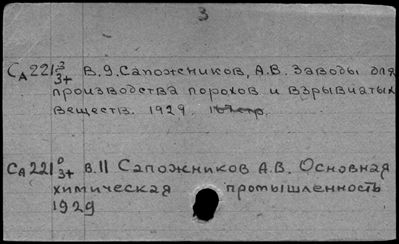 3
СА 221 3/3+ В.9. Сапожников, А.В. Заводы для
производства порохов и взрывчатых
веществ. 1929.
СА 221 0/3+ В.11 Сапожников А.В. Основная
химическая промышленность
1929